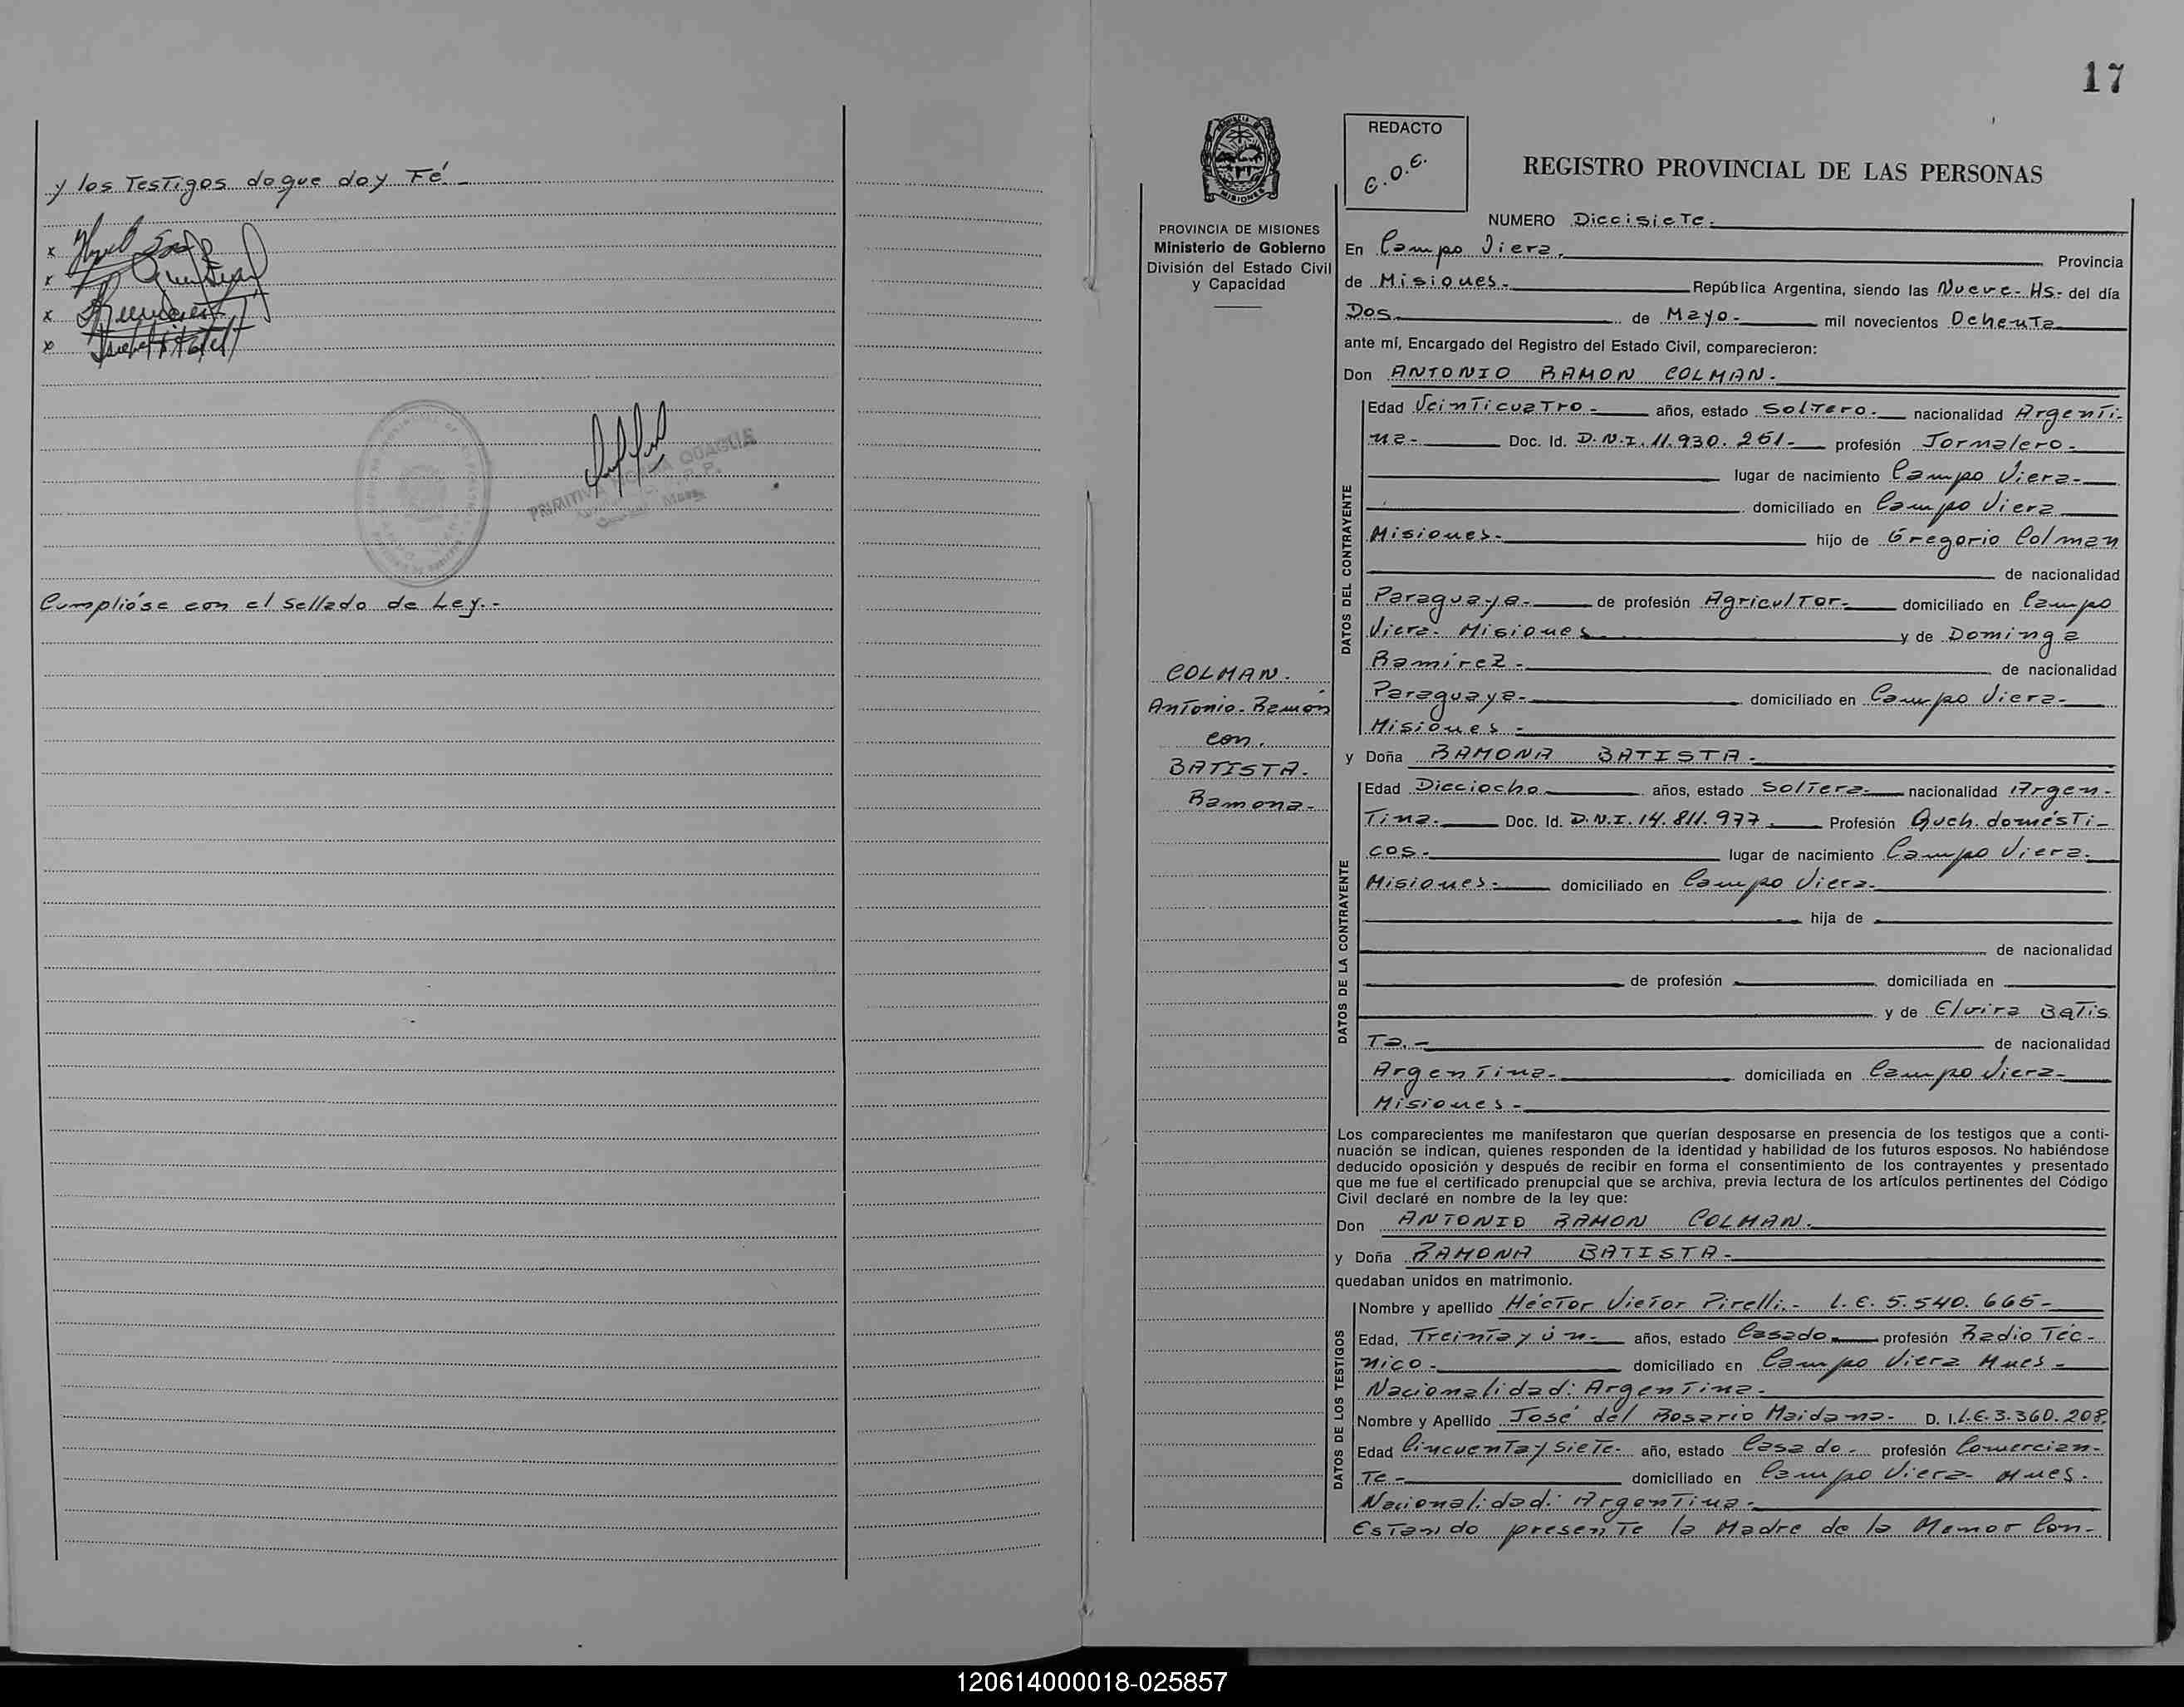 y los Testigos de que doy Fé.-
x
x
x
x
PRIMITIVA
Cumplióse con el sellado de Ley.-
17
PROVINCIA DE MISIONES
Ministerio de Gobierno
División del Estado Civil
y Capacidad
COLMAN.
Antonio-Ramón
con.
BATISTA.
Ramona-
REDACTO
C.O.E.
REGISTRO PROVINCIAL DE LAS PERSONAS
NUMERO Diecisiete.
En Campo Viera. Provincia
de Misiones.- República Argentina, siendo las Nueve-Hs- del día
Dos. de Mayo- mil novecientos Ochenta
ante mí, Encargado del Registro del Estado Civil, comparecieron:
Don ANTONIO RAMON COLMAN.
DATOS DEL CONTRAYENTE
Edad Veinticuatro- años, estado Soltero.- nacionalidad Argenti-
na- Doc. Id. D.N.I. 11.930.261- profesión Jornalero-
lugar de nacimiento Campo Viera-
domiciliado en Campo Viera
Misiones- hijo de Gregorio Colman
de nacionalidad
Paraguaya- de profesión Agricultor- domiciliado en Campo
Viera- Misiones y de Dominga
Ramirez- de nacionalidad
Paraguaya- domiciliado en Campo Viera-
Misiones-
y Doña RAMONA BATISTA-
DATOS DE LA CONTRAYENTE
Edad Dieciocho- años, estado Soltera- nacionalidad Argen-
tina- Doc. Id. D.N.I. 14.811.977.- Profesión Queh. domésti-
cos- lugar de nacimiento Campo Viera.
Misiones- domiciliado en Campo Viera-
hija de
de nacionalidad
de profesión domiciliada en
y de Elvira Batis
Ta.- de nacionalidad
Argentina- domiciliada en Campo Viera-
Misiones-
Los comparecientes me manifestaron que querían desposarse en presencia de los testigos que a conti-
nuación se indican, quienes responden de la identidad y habilidad de los futuros esposos. No habiéndose
deducido oposición y después de recibir en forma el consentimiento de los contrayentes y presentado
que me fue el certificado prenupcial que se archiva, previa lectura de los artículos pertinentes del Código
Civil declaré en nombre de la ley que:
Don ANTONIO RAMON COLMAN.
y Doña RAMONA BATISTA-
quedaban unidos en matrimonio.
DATOS DE LOS TESTIGOS
Nombre y apellido Héctor Victor Pirelli.- L.E. 5.540.665-
Edad, Treinta y ún- años, estado Casado- profesión Radio Téc-
nico- domiciliado en Campo Viera Mnes-
Nacionalidad: Argentina-
Nombre y Apellido José del Rosario Maidana- D. I. L.E. 3.360.208.
Edad Cincuenta y Siete- año, estado Casado- profesión Comercian-
Te- domiciliado en Campo Viera- Mnes.
Nacionalidad: Argentina-
Estando presente la Madre de la Menor Con-
120614000018-025857